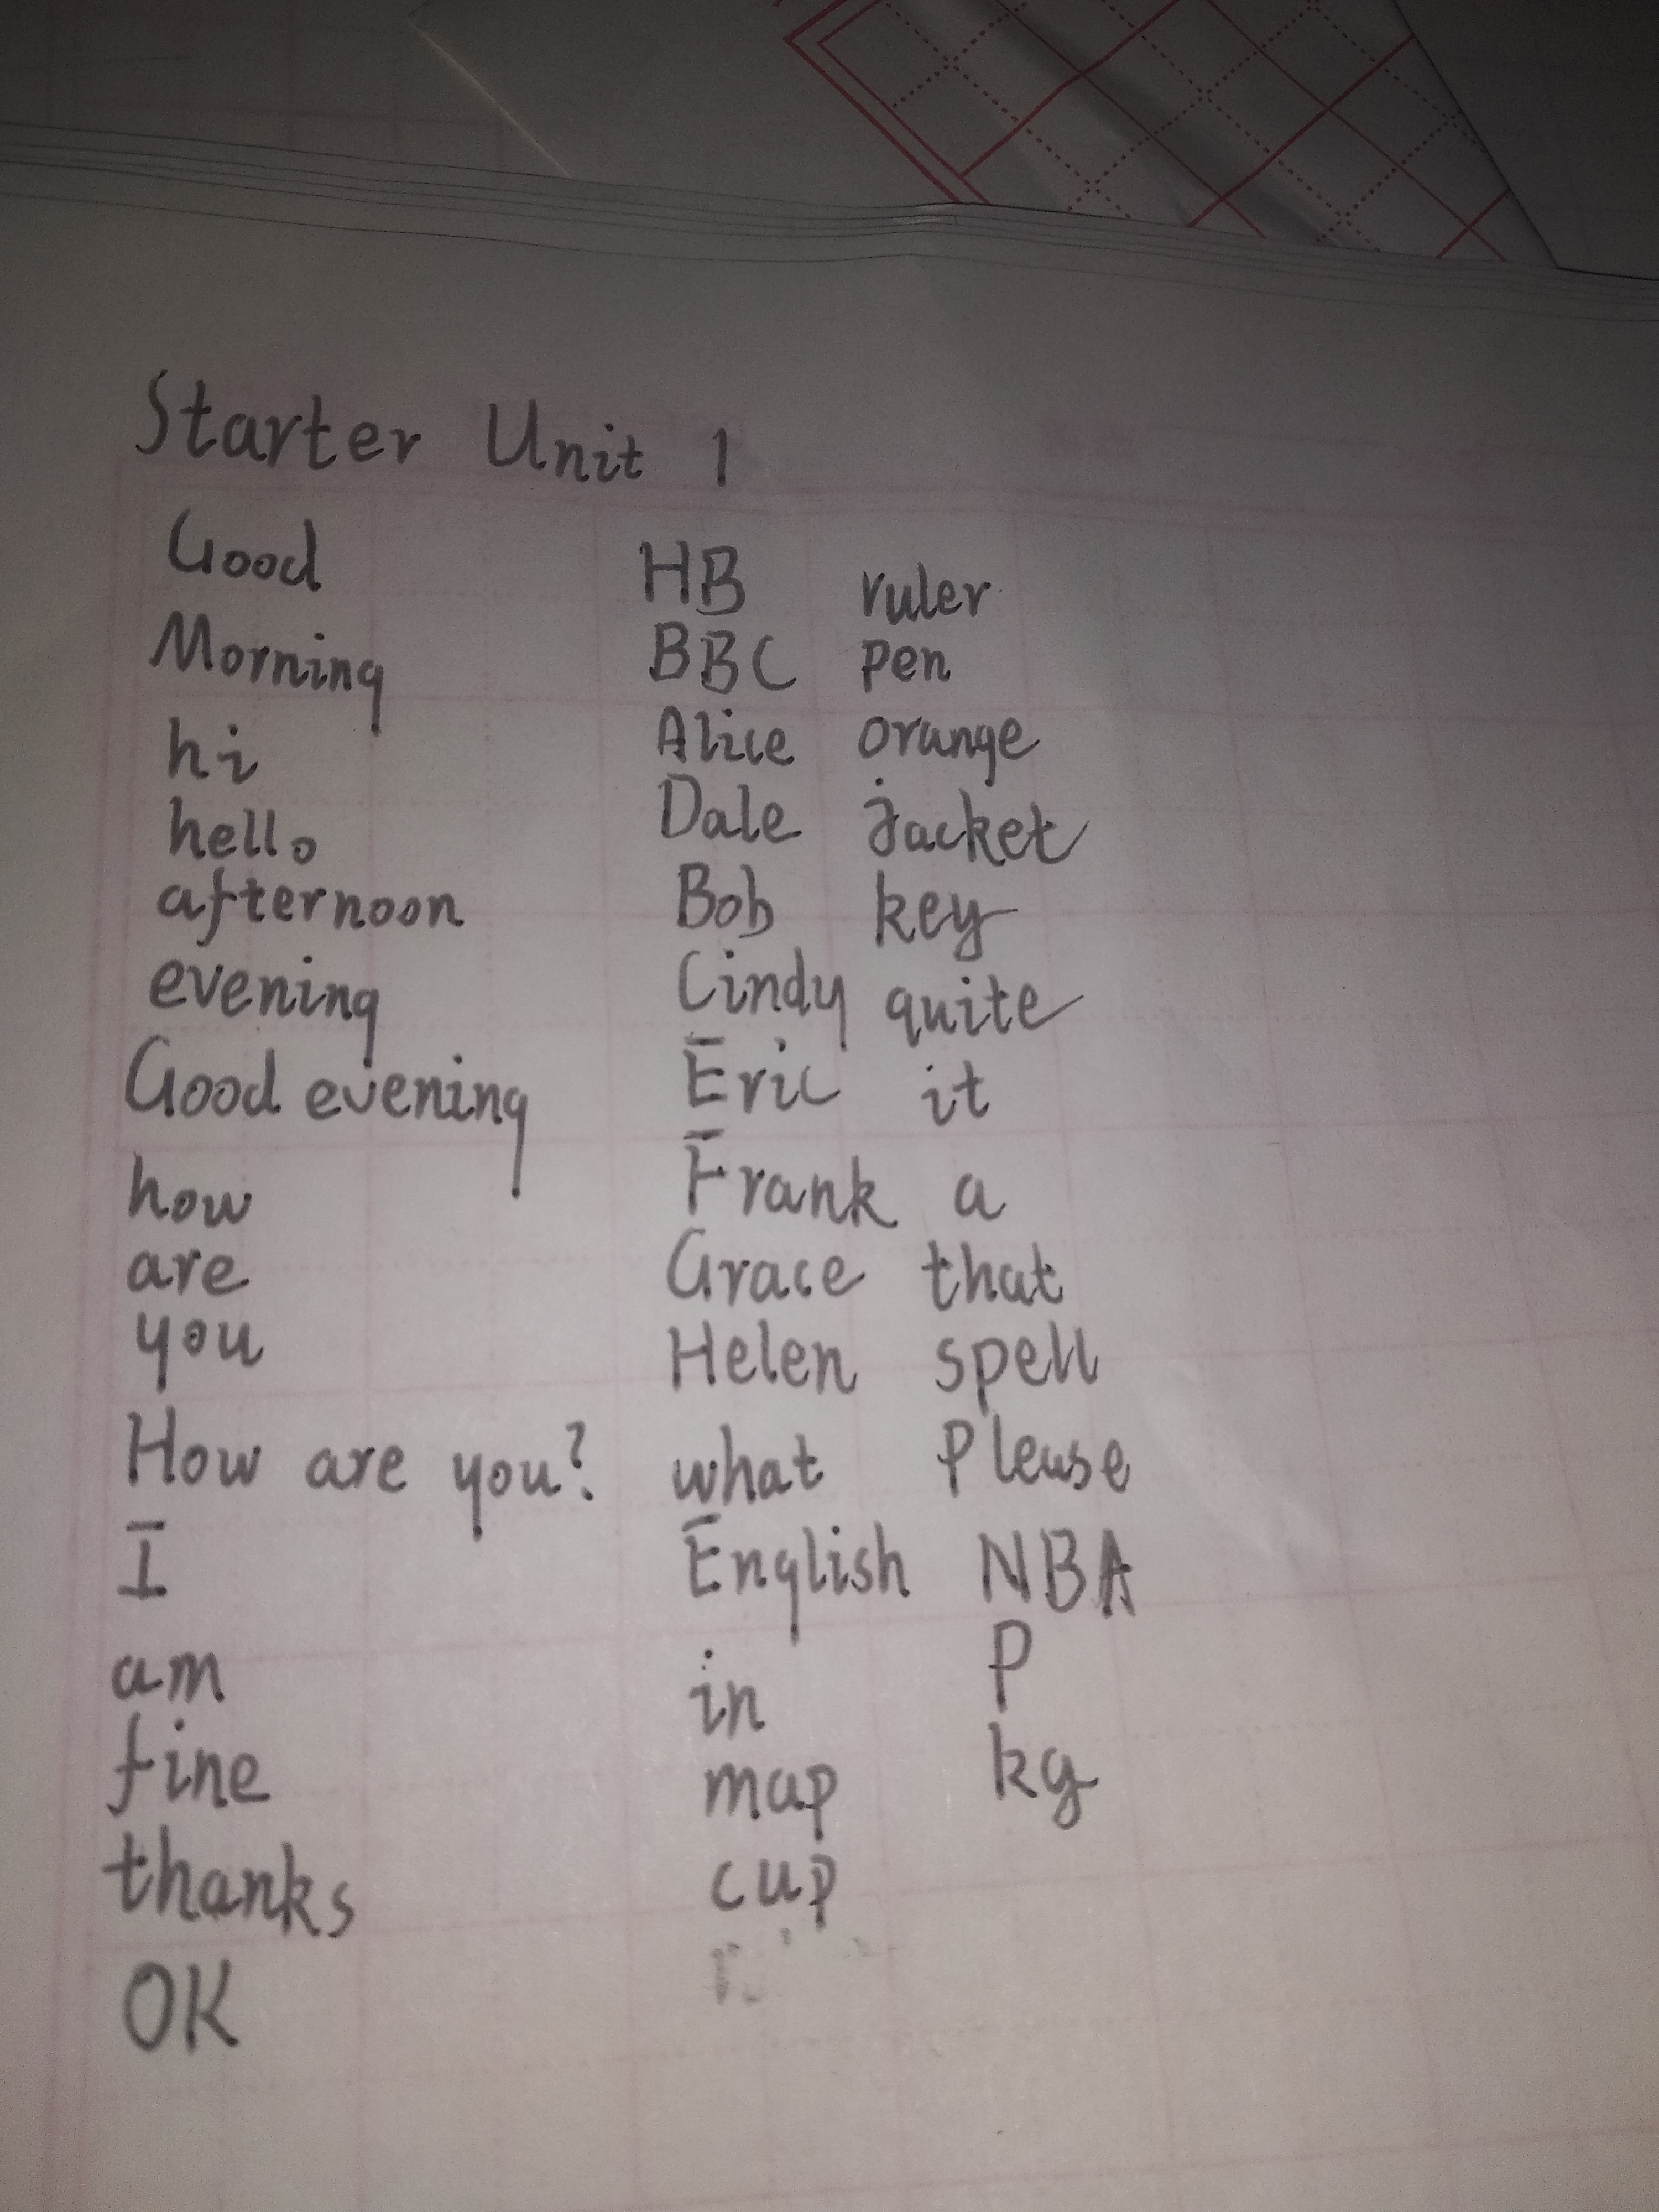 Starter Unit 1
Good
Morning
hi
hello
afternoon
evening
Good evening
how
are
you
How are you?
I
am
fine
thanks
OK
HB
BBC
Alice
Dale
Bob
Cindy
Eric
Frank
Grace
Helen
what
English
in
map
cup
ruler
pen
orange
jacket
key
quite
it
a
that
spell
Please
NBA
P
kg